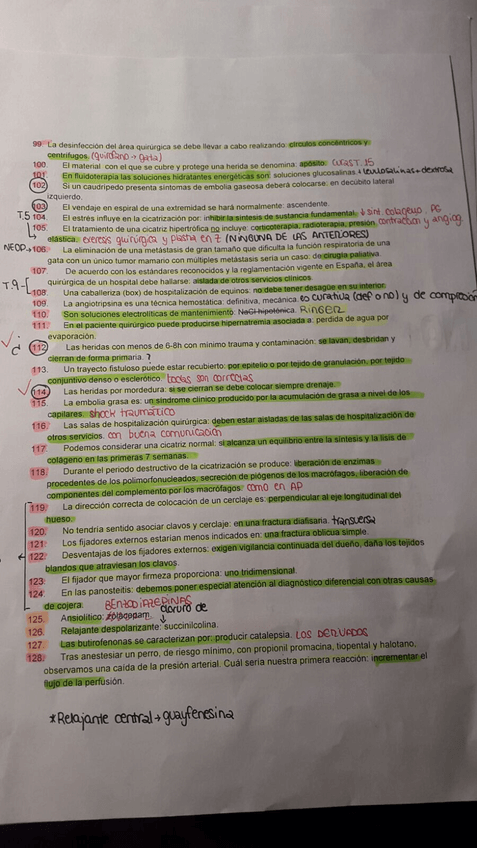 99. La desinfección del área quirúrgica se debe llevar a cabo realizando: círculos concéntricos y
centrífugos. (quirófano → gata)
100. El material con el que se cubre y protege una herida se denomina: apósito. CURAS T.15
101. En fluidoterapia las soluciones hidratantes energéticas son: soluciones glucosalinas. + levulosalinas + dextrosa
102. Si un caudripedo presenta síntomas de embolia gaseosa deberá colocarse: en decúbito lateral
izquierdo.
103. El vendaje en espiral de una extremidad se hará normalmente: ascendente.
T.5 104. El estrés influye en la cicatrización por: inhibir la síntesis de sustancia fundamental. ↓ sint. colágeno, AG
contracción y angiog
105. El tratamiento de una cicatriz hipertrófica no incluye: corticoterapia, radioterapia, presión
elástica. exéresis quirúrgica y plastia en Z (NINGUNA DE LAS ANTERIORES)
NEOP → 106. La eliminación de una metástasis de gran tamaño que dificulta la función respiratoria de una
gata con un único tumor mamario con múltiples metástasis sería un caso: de cirugía paliativa.
107. De acuerdo con los estándares reconocidos y la reglamentación vigente en España, el área
quirúrgica de un hospital debe hallarse: aislada de otros servicios clínicos.
T.9 108. Una caballeriza (box) de hospitalización de equinos: no debe tener desagüe en su interior.
109. La angiotripsina es una técnica hemostática: definitiva, mecánica. es curativa (def o no) y de compresión
110. Son soluciones electrolíticas de mantenimiento: NaCl hipotónica. RINGER
111. En el paciente quirúrgico puede producirse hipernatremia asociada a: perdida de agua por
evaporación.
112. Las heridas con menos de 6-8h con mínimo trauma y contaminación: se lavan, desbridan y
cierran de forma primaria. ?
113. Un trayecto fistuloso puede estar recubierto: por epitelio o por tejido de granulación, por tejido
conjuntivo denso o esclerótico. todas son correctas
114. Las heridas por mordedura: si se cierran se debe colocar siempre drenaje.
115. La embolia grasa es: un síndrome clínico producido por la acumulación de grasa a nivel de los
capilares. shock traumático
116. Las salas de hospitalización quirúrgica: deben estar aisladas de las salas de hospitalización de
otros servicios. con buena comunicación
117. Podemos considerar una cicatriz normal: si alcanza un equilibrio entre la síntesis y la lisis de
colágeno en las primeras 7 semanas.
118. Durante el periodo destructivo de la cicatrización se produce: liberación de enzimas
procedentes de los polimorfonucleados, secreción de piógenos de los macrófagos, liberación de
componentes del complemento por los macrófagos. como en AP
119. La dirección correcta de colocación de un cerclaje es: perpendicular al eje longitudinal del
hueso.
120. No tendría sentido asociar clavos y cerclaje: en una fractura diafisaria. transversa
121. Los fijadores externos estarían menos indicados en: una fractura oblicua simple.
122. Desventajas de los fijadores externos: exigen vigilancia continuada del dueño, daña los tejidos
blandos que atraviesan los clavos.
123. El fijador que mayor firmeza proporciona: uno tridimensional.
124. En las panosteitis: debemos poner especial atención al diagnóstico diferencial con otras causas
de cojera.
BENZODIAZEPINAS
125. Ansiolítico: zolacepam. cloruro de
126. Relajante despolarizante: succinilcolina.
127. Las butirofenonas se caracterizan por: producir catalepsia. LOS DERIVADOS
128. Tras anestesiar un perro, de riesgo mínimo, con propionil promacina, tiopental y halotano,
observamos una caída de la presión arterial. Cuál sería nuestra primera reacción: incrementar el
flujo de la perfusión.
*Relajante central → guayfenesina